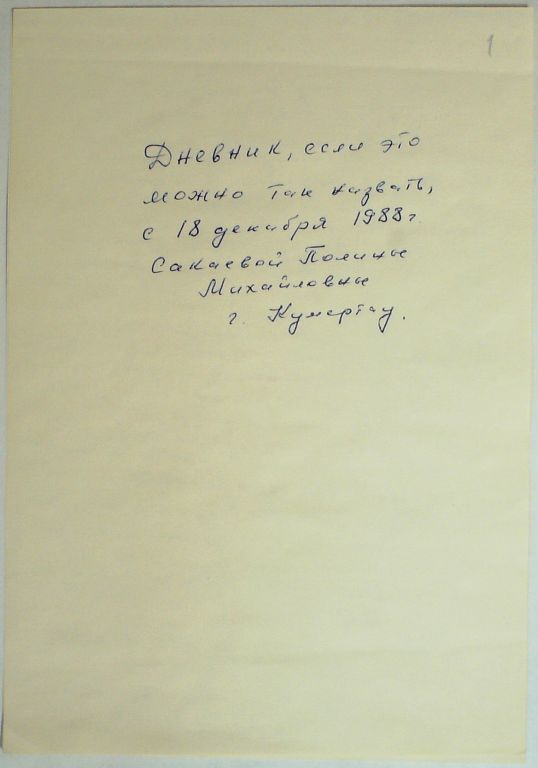 1
Дневник, если это
можно так назвать,
с 18 декабря 1988 г.
Сакаевой Полины
Михайловны
г. Кумертау.